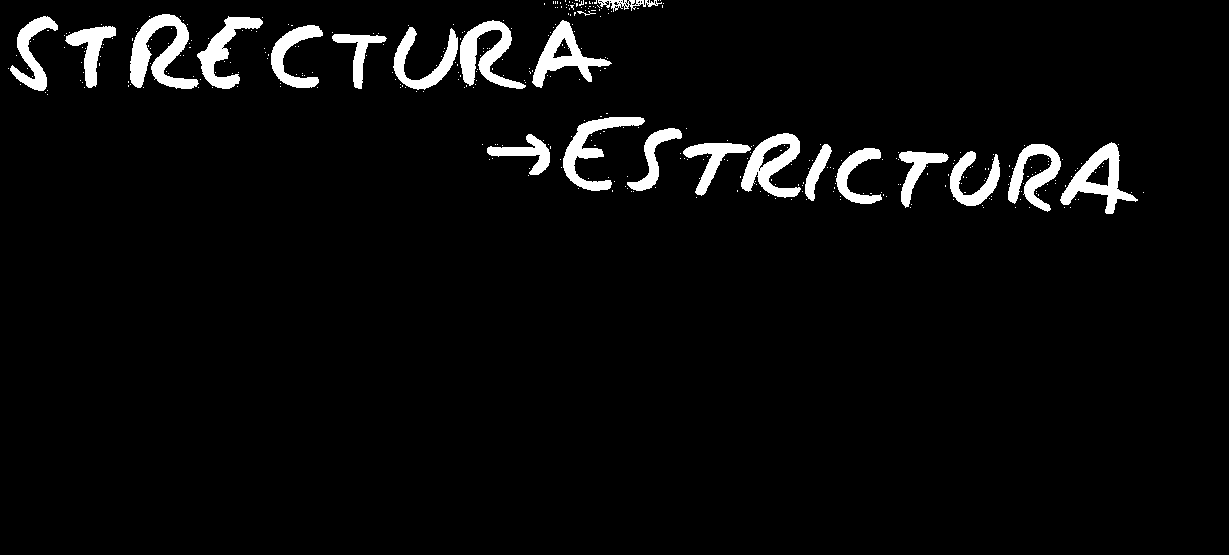 STRECTURA
→ESTRICTURA